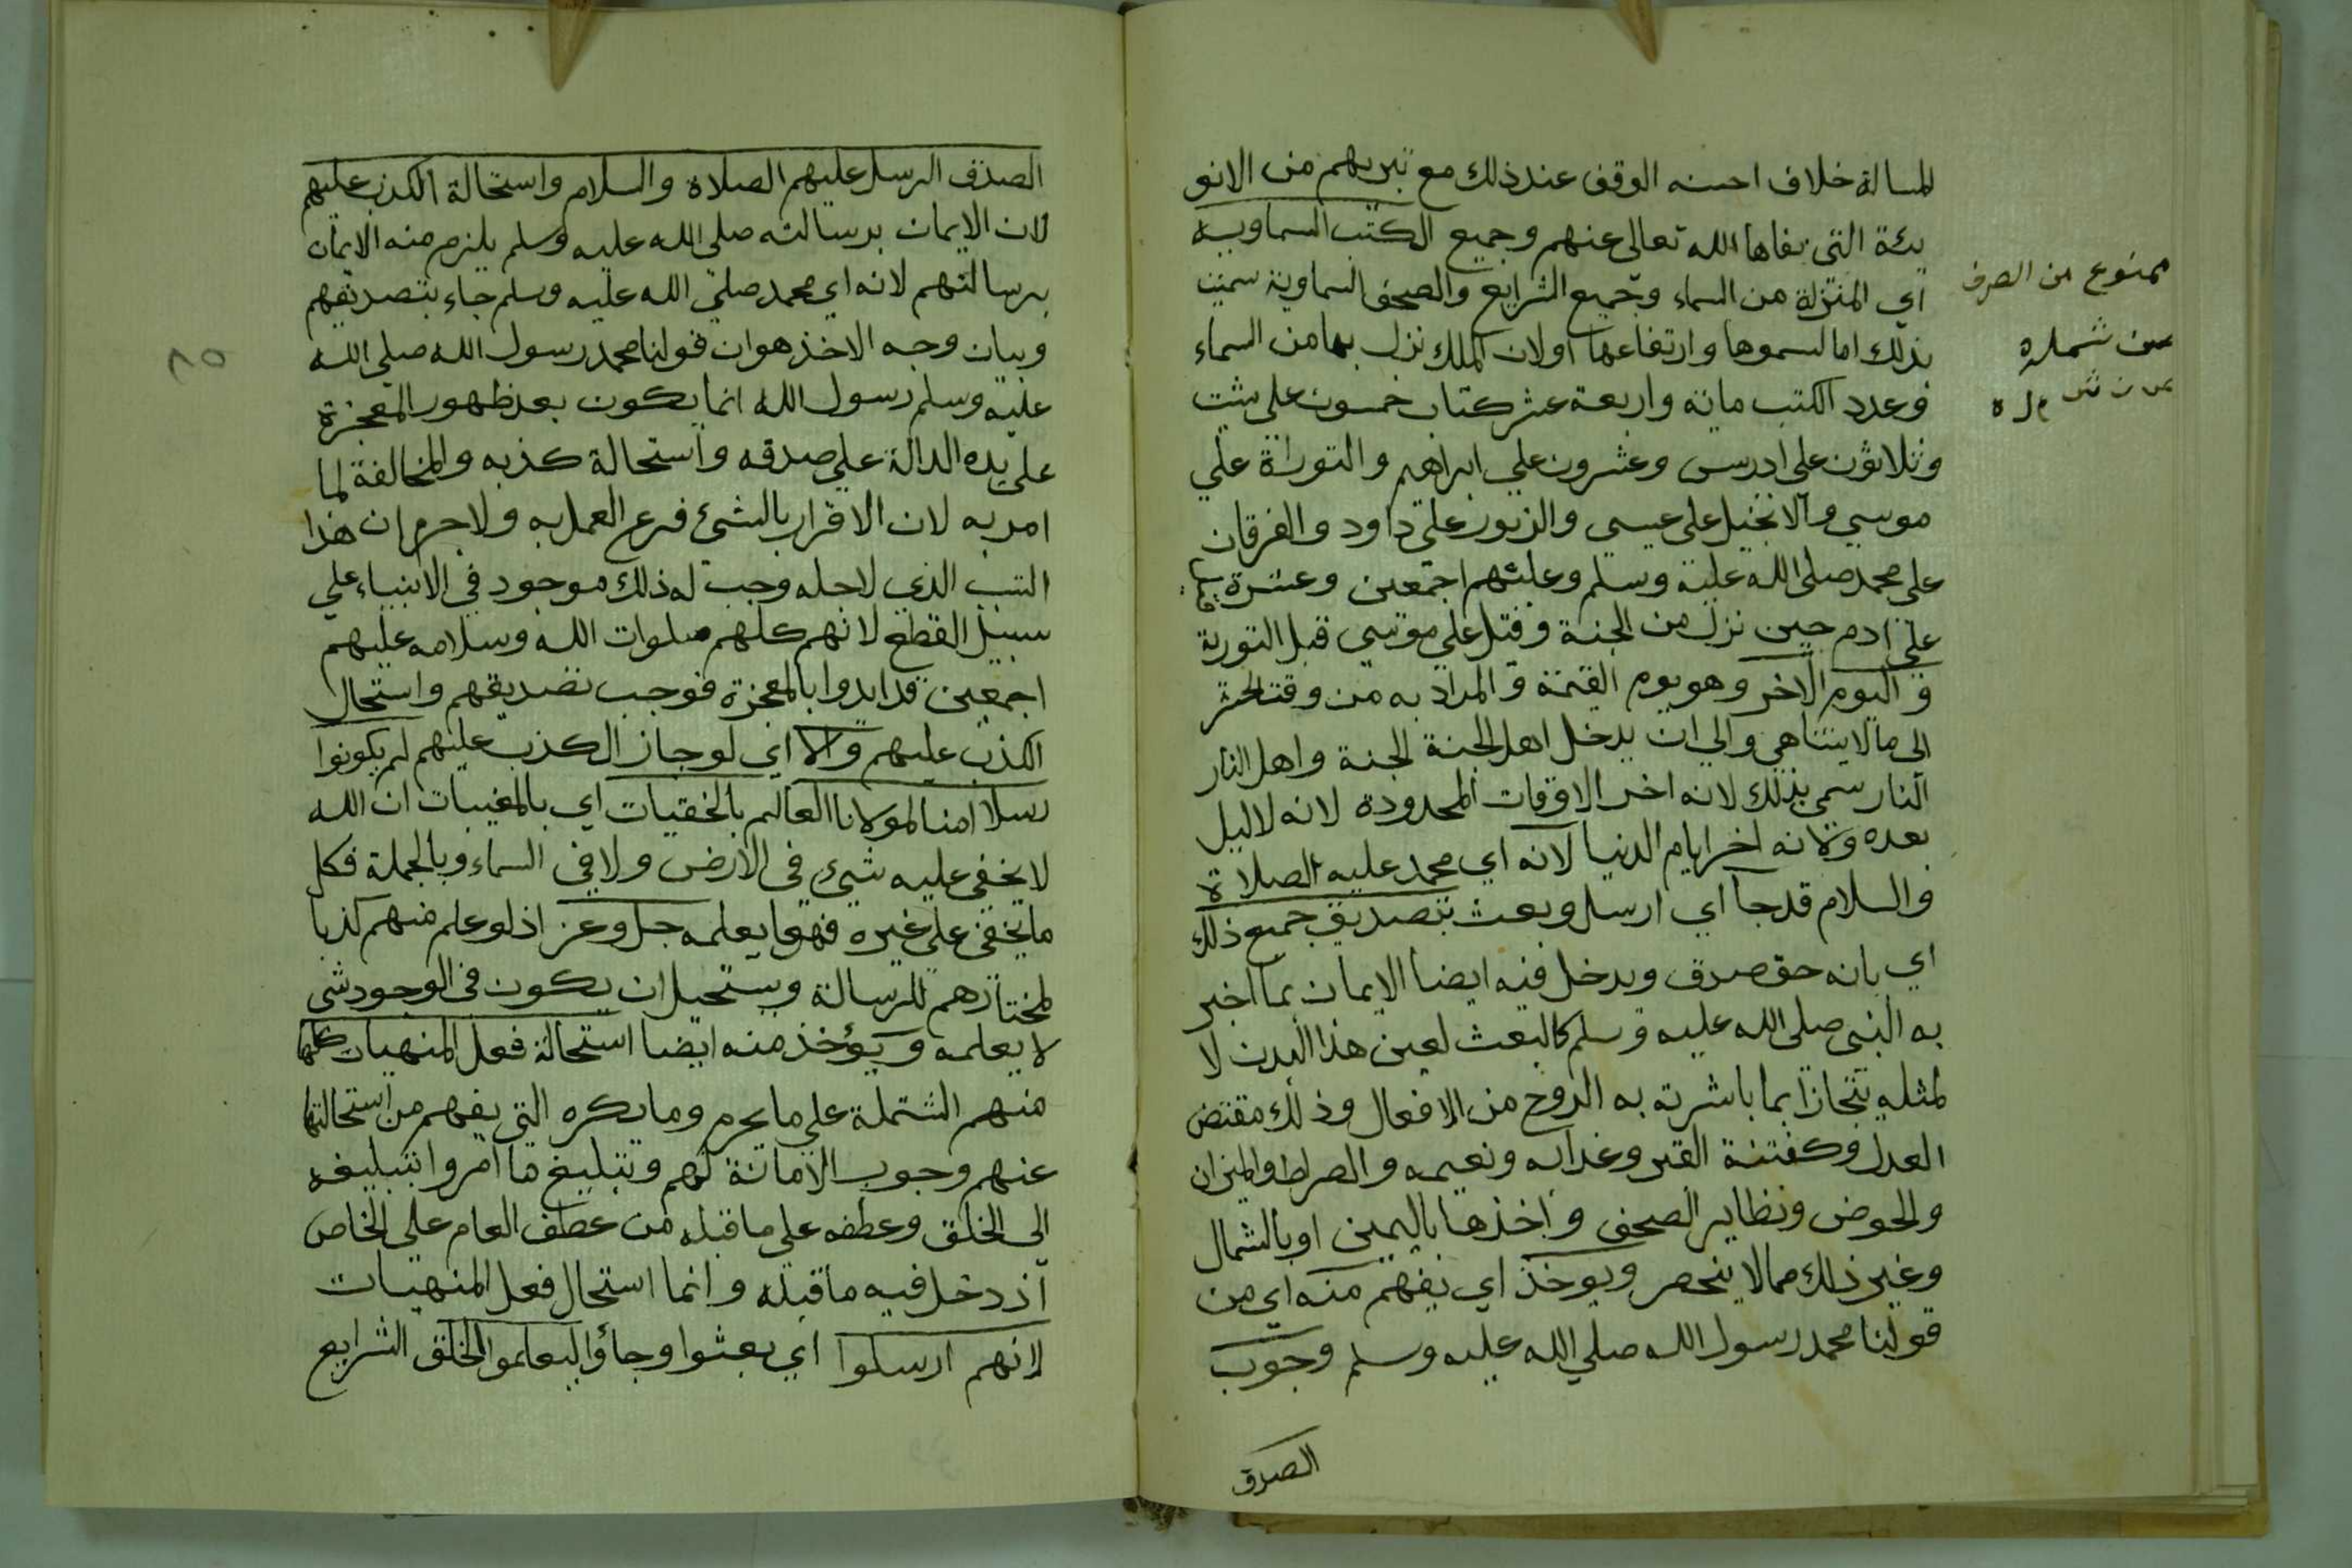 المسالة خلاف احسنه الوقف عند ذلك مع تبريهم من الانو
ثة التي نفاها الله تعالى عنهم وجميع الكتب السماوية
اي المنزلة من السماء وجميع الشرايع والصحف السماوية سميت
بذلك اما لسموها وارتفاعها اولان الملك نزل بها من السماء
فعدد الكتب ماية واربعة عشر كتاب خمسون على شيت
وثلاثون على ادرس وعشرون علي ابراهيم والتوراة علي
موسي والانجيل على عيسى والزبور على داود والفرقان
على محمد صلى الله عليه وسلم وعليهم اجمعين وعشرة
علي ادم حين نزل من الجنة وقيل علي موسي قبل التورية
و اليوم الاخر وهو يوم القيمة والمراد به من وقت الحشر
الى ما لا يتناهي والي ان يدخل اهل الجنة الجنة واهل النار
النار سمي بذلك لانه اخر الاوقات المحدودة لانه لا ليل
بعده ولانه اخر ايام الدنيا لانه اي محمد عليه الصلاة
والسلام قد جا اي ارسل وبعث بتصديق جميع ذلك
اي بانه حق صدق ويدخل فيه ايضا الايمان بما اخبر
به النبي صلى الله عليه وسلم كالبعث لعين هذا البدن لا
لمثله يتجازا بما باشرته به الروح من الافعال وذلك مقتض
العدل وكفتنة القبر وعذابه ونعيمه والصراط والميزان
والحوض وتطاير الصحف واخذها باليمين او بالشمال
وغير ذلك مما لا ينحصر ويوخذ اي يفهم منه اي من
قولنا محمد رسول الله صلي الله عليه وسلم وجوب
الصدق
ممنوع من الصرف
الصدق الرسل عليهم الصلاة والسلام واستحالة الكذب عليهم
لان الايمان برسالته صلى الله عليه وسلم يلزم منه الايمان
برسالتهم لانه اي محمد صلي الله عليه وسلم جاء بتصديقهم
وبيان وجه الاخذ هو ان قولنا محمد رسول الله صلى الله
عليه وسلم رسول الله انما يكون بعد ظهور المعجزة
على يده الدالة على صدقه واستحالة كذبه والمخالفة لما
امر به لان الاقرار بالشئ فرع العمل به ولا جرم ان هذا
السبب الذي لاجله وجب له ذلك موجود في الانبياء علي
سبيل القطع لانهم كلهم صلوات الله وسلامه عليهم
اجمعين قد ايدوا بالمعجزة فوجب تصديقهم واستحال
الكذب عليهم والا اي لو جاز الكذب عليهم لم يكونوا
رسلا امنا لمولانا العالم بالخفيات اي بالمغيبات ان الله
لا يخفى عليه شيء في الارض ولا في السماء وبالجملة فكل
ما يخفى على غيره فهو يعلمه جل وعز اذ لو علم منهم كذبا
لما اختارهم للرسالة ويستحيل ان يكون فى الوجود شى
لا يعلمه ويؤخذ منه ايضا استحالة فعل المنهيات كلها
منهم الشتملة علي ما يحرم وما يكره التي يفهم من استحالتها
عنهم وجوب الامانة لهم وتبليغ ما امروا بتبليغه
الى الخلق وعطفه على ما قبله من عطف العام على الخاص
اذ دخل فيه ما قبله وانما استحال فعل المنهيات
لانهم ارسلوا اي بعثوا وجاؤا ليعلموا الخلق الشرايع